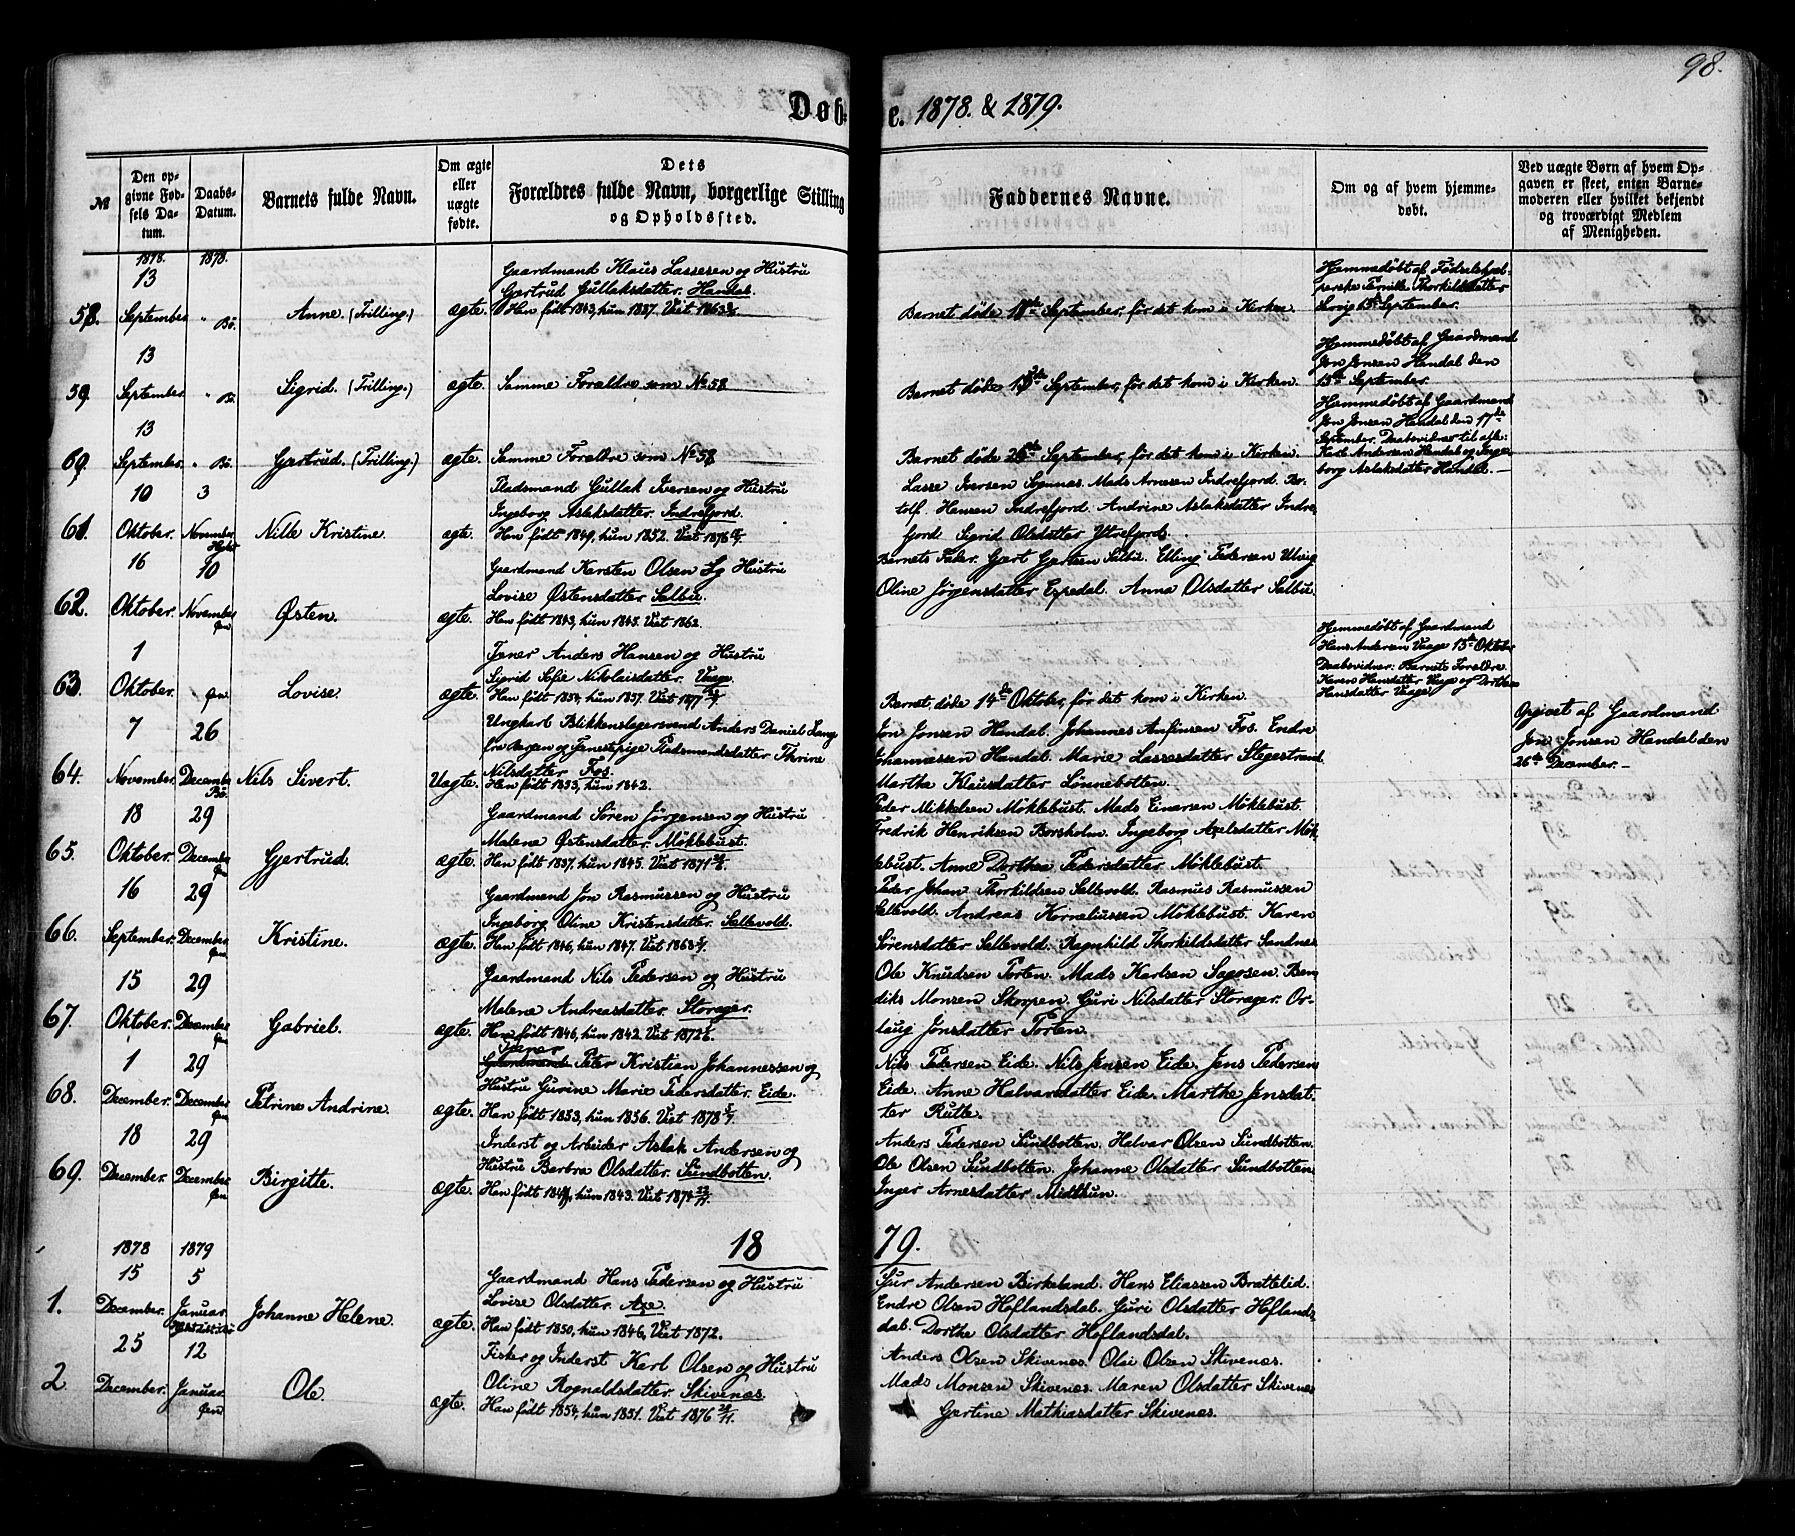 98.
Døbte. 1878. & 1879.
№
Den opgivne Fødsels Datum.
Daabs-Datum.
Barnets fulde Navn.
Om ægte eller uægte fødte.
Dets Forældres fulde Navn, borgerlige Stilling og Opholdssted.
Faddernes Navne.
Om og af hvem hjemmedøbt.
Ved uægte Børn af hvem Opgaven er skeet, enten Barnemoderen eller hvilket bekjendt og troværdigt Medlem af Menigheden.
1878. 1878.
13
Gaardmand Klaus Lassesen og Hustru
Gjertrud Gullaksdatter. Handal.
58. September. " Bø. Anne. (Trilling.) ægte. Han født 1843, hun 1837. Viet 1863
Barnet døde September, før det kom i Kirken.
Hjemmedøbt af Fødselshjelperske Pernille Thorkildsdatter
Servig September.
13
59. September. " Bø. Sigrid. (Trilling.) ægte. Samme Forældre som No 58
Barnet døde September, før det kom i Kirken.
Hjemmedøbt af Gaardmand
Jon Jonsen Handal den
15de September.
13
60. September. " Bø. Gjertrud. (Trilling.) ægte. Samme Forældre som No 58
Barnet døde September, før det kom i Kirken.
Hjemmedøbt af Gaardmand
Jon Jonsen Handal den 17de
September. Daabsvidner til
Karl Andersen Handal og Ingeborg Aslaksdatter Handal. —
10 3
Pladsmand Gullak Iversen og Hustru
Ingeborg Aslaksdatter. Indrefjord.
61. Oktober. November Nille Kristine. ægte. Han født 1849, hun 1852. Viet 1876
Lasse Iversen Sognnæs. Mads Arnesen Indrefjord. Botolf
Hansen Indrefjord. Andrine Aslaksdatter Indrefjord
Sigrid Olsdatter Ytrefjord.
16 10
Gaardmand Karsten Olsen og Hustru
Lovise Østensdatter Salbu.
62. Oktober. November. Øen Østen. ægte. Han født 1843, hun 1843. Viet 1862.
Barnets Fader. Gjert Gjertsen Salbu. Elling Pedersen Ulvig
Oline Jørgensdatter Espedal. Anna Olsdatter Salbu.
1
Tjener Anders Hansen og Hustru
Sigrid Sofie Nikolaisdatter. Vaage.
63. Oktober. " Øen. Lovise. ægte. Han født 1854, hun 1857. Viet 1877
Barnet døde 14de Oktober, før det kom i Kirken.
Hjemmedøbt af Gaardmand
Hans Andersen Vaage 13de Oktober
Daabsvidner: Barnets Forældre
Karen Hansdatter Vaage og Dorthea
Hansdatter Vaage.
7 26
Ungkarl Blikkenslagersvend Anders Daniel Lang
fra Bergen og Tjenestepige Pladsmandsdatter Thrine
Nilsdatter Fos.
64. November. December Bø. Nils Sivert. Uægte. Han født 1853, hun 1842.
Jon Jonsen Handal. Johannes Anfinsen Fos. Endre
Johannessen Handal. Marie Lassesdatter Stegestrand.
Martha Klausdatter Lønnebotten.
Opgivet af Gaardmand
Jon Jonsen Handal den
26de December. —
18 29
Gaardmand Søren Jørgensen og Hustru
Malene Østensdatter. Møklebust.
65. Oktober. December Øen Gjertrud. ægte. Han født 1837, hun 1845. Viet 1871
Peder Mikkelsen Møklebust. Mads Einarsen Møklebust.
Fredrik Henriksen Borsholm. Ingeborg Axelsdatter Møklebust.
Anne Dorthea Pedersdatter Møklebust.
16 29
Gaardmand Jon Rasmussen og Hustru
Ingeborg Oline Kristensdatter. Sellevold.
66. September. December. Øen. Kristine. ægte. Han født 1846, hun 1847. Viet 1868
Peder Johan Thorkildsen Sellevold. Rasmus Rasmussen
Sellevold. Andreas Korneliussen Møklebust. Karen
Sørensdatter Sellevold. Ragnhild Thorkildsdatter Sandnes
15 29
Gaardmand Nils Pedersen og Hustru
Malene Andreasdatter. Storager.
67. Oktober. December Øen Gabriel. ægte. Han født 1846, hun 1842. Viet 1872
Ole Knudsen Torten. Mads Karlsen Sagosen. Bendiks
Monsen Skorpen. Guri Nilsdatter Storager. Orlaug
Jonsdatter Torten.
1 29
Tjener
Gaardmand Peter Kristian Johannessen og
Hustru Gurine Marie Pedersdatter. Eide.
68. December. December. Øen Petrine Andrine. ægte. Han født 1853, hun 1856. Viet 1878
Nils Pedersen Eide. Nils Jensen Eide. Jens Pedersen
Eide. Anne Halvarsdatter Eide. Marthe Jensdatter
Rutle.
18 29
Inderst og Arbeider Aslak Andersen og
Hustru Barbra Olsdatter. Sundbotten.
69. December. December. Øen Birgitte. ægte. Han født hun 1843. Viet 1874
Anders Pedersen Sundbotten. Halvar Olsen Sundbotten.
Ole Olsen Sundbotten. Johanne Olsdatter Sundbotten
Inger Arnesdatter Midthun.
1878 1879 1879.
15 5
Gaardmand Hans Pedersen og Hustru
Lovise Olsdatter. Axe.
1. December. Januar. Johanne Helene. ægte. Han født 1850, hun 1846, Viet 1872.
Sjur Andersen Birkeland. Hans Eliassen Brattelid.
Endre Olsen Hoflandsdal. Guri Olsdatter Hoflandsdal.
Dorthe Olsdatter Hoflandsdal.
25 12
Fisker og Inderst Karl Olsen og Hustru
Oline Rognaldsdatter. Skivenæs.
2 December. Januar. Øen Ole. ægte. Han født 1854, hun 1851. Viet 1876
Anders Olsen Skivenæs. Olai Olsen Skivenæs.
Mads Monsen Skivenæs. Maren Olsdatter Skivenæs
Gjertine Mathiasdatter Skivenæs.